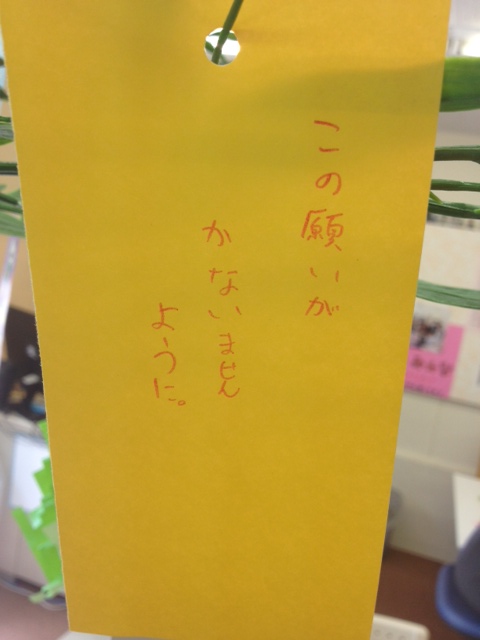 この願いが
かないません
ように。